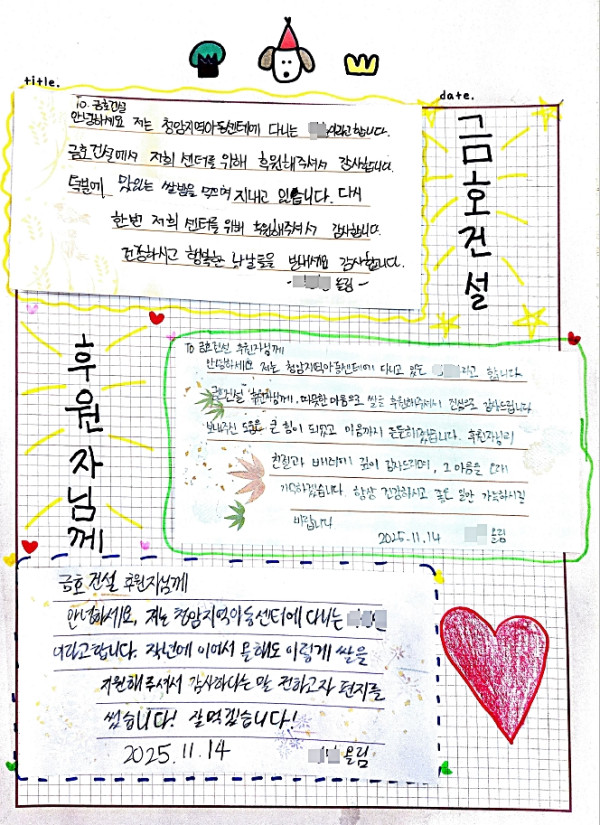 title.
date.
금호건설
To 금호건설
안녕하세요 저는 청암지역아동센터에 다니는 이라고합니다.
금호건설에서 저희 센터를 위해 후원해주셔서 감사합니다.
덕분에 맛있는 쌀밥을 먹으며 지내고 있습니다. 다시
한번 저희 센터를 위해 후원해주셔서 감사합니다.
건강하시고 행복한 나날들을 보내세요 감사합니다.
- 올림 -
후원자님께
To 금호건설 후원자님께
안녕하세요 저는 청암지역아동센터에 다니고 있는 라고 합니다.
금호건설 후원자님께, 따뜻한 마음으로 쌀을 후원해주셔서 진심으로 감사드립니다
보내주신 도움은 큰 힘이 되었고 마음까지 든든해졌습니다. 후원자님의
친절과 배려에 깊이 감사드리며, 그 마음을 오래
기억하겠습니다. 항상 건강하시고 좋은 일만 가득하시길
바랍니다
2025.11.14 올림
금호건설 후원자님께
안녕하세요, 저는 청암지역아동센터에 다니는
이라고합니다. 작년에 이어서 올해도 이렇게 쌀을
지원해주셔서 감사하다는 말 전하고자 편지를
썼습니다! 잘먹겠습니다!
2025.11.14 올림